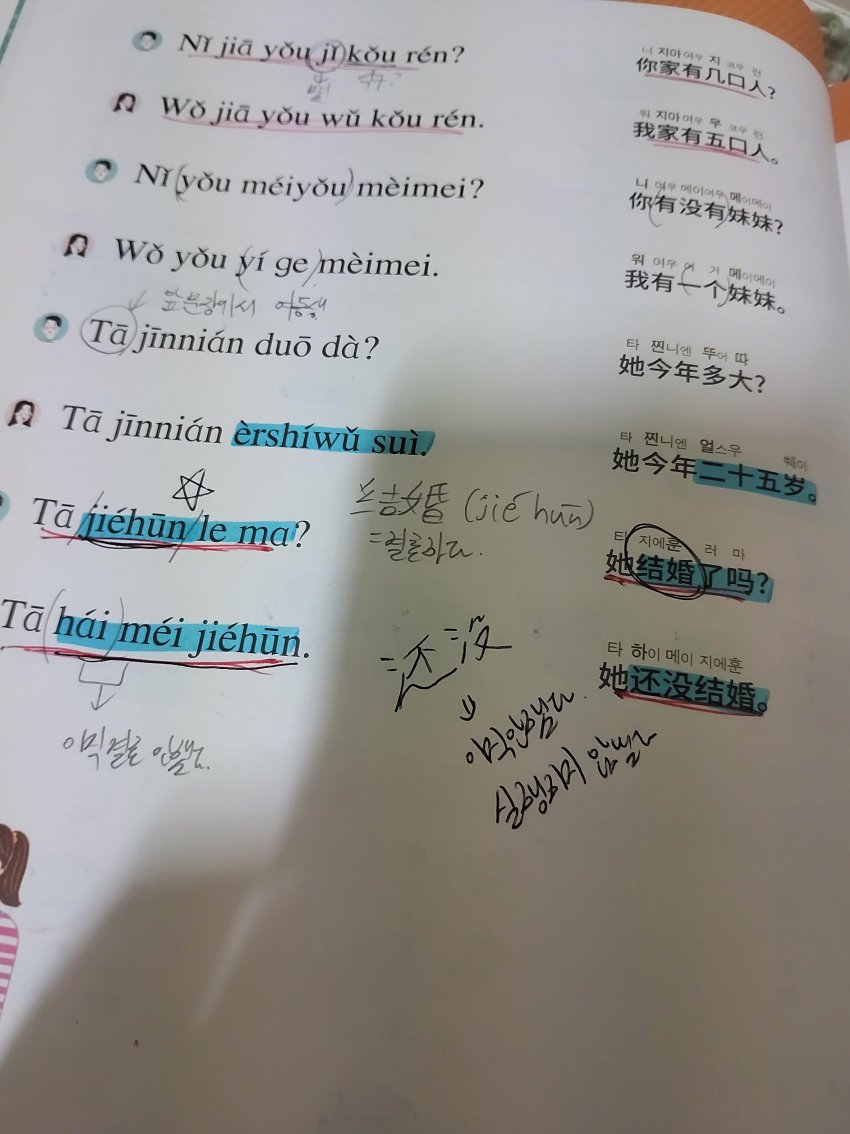 Nǐ jiā yǒu jǐ kǒu rén?
니 지아 여우 지 코우 런
你家有几口人?
몇
Wǒ jiā yǒu wǔ kǒu rén.
워 지아 여우 우 코우 런
我家有五口人。
Nǐ yǒu méiyǒu mèimei?
니 여우 메이여우 메이메이
你有没有妹妹?
Wǒ yǒu yí ge mèimei.
워 여우 이 거 메이메이
我有一个妹妹。
앞문장에서 여동생
Tā jīnnián duō dà?
타 찐니엔 뚜어 따
她今年多大?
Tā jīnnián èrshíwǔ suì.
타 찐니엔 얼스우 쒜이
她今年二十五岁。
Tā jiéhūn le ma?
타 지에훈 러 마
她结婚了吗?
结婚 (jié hūn)
= 결혼하다.
Tā hái méi jiéhūn.
타 하이 메이 지에훈
她还没结婚。
= 不 = 没
아직 결혼 안했다.
아직안했다
실행하지 않았다